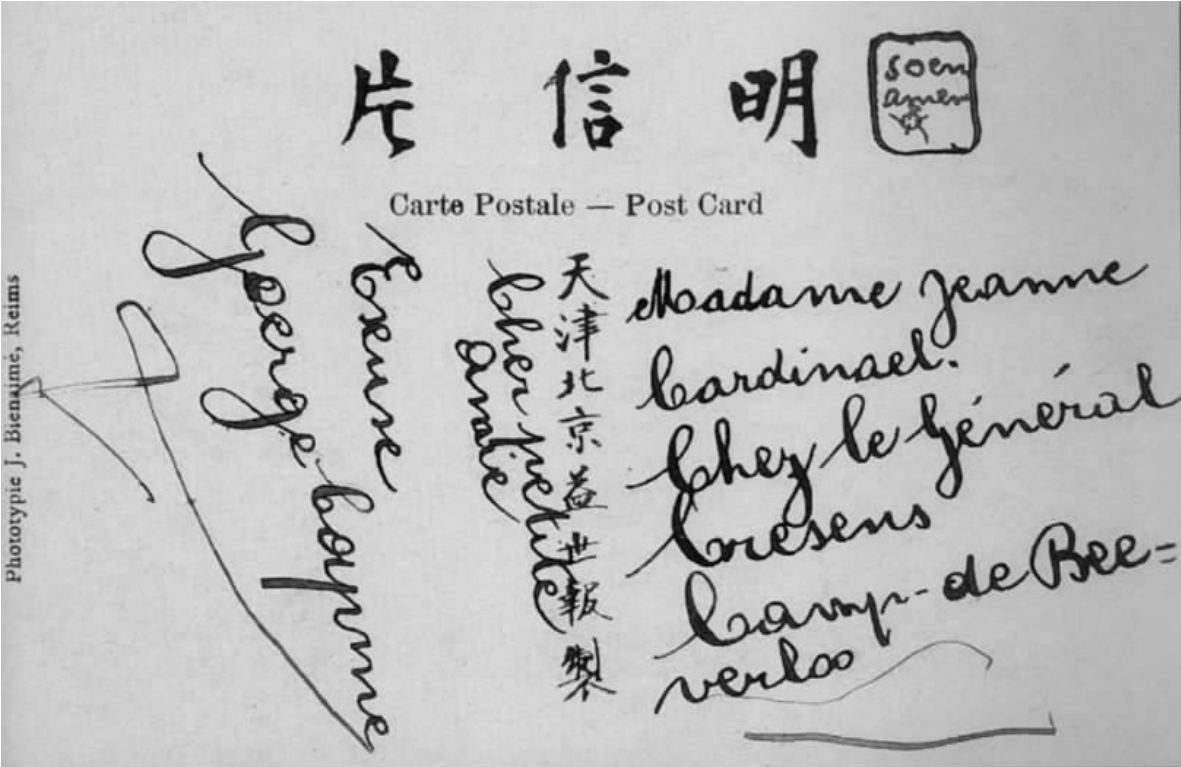 片 信 明
soen
amen
Carte Postale — Post Card
天津北京益世報製
Madame Jeanne
Cardinael.
Chez le Général
Cresens
Camp-de Bee=
verloo
Cher petite
amie
George
Photot​ypie J. Bienaimé, Reims